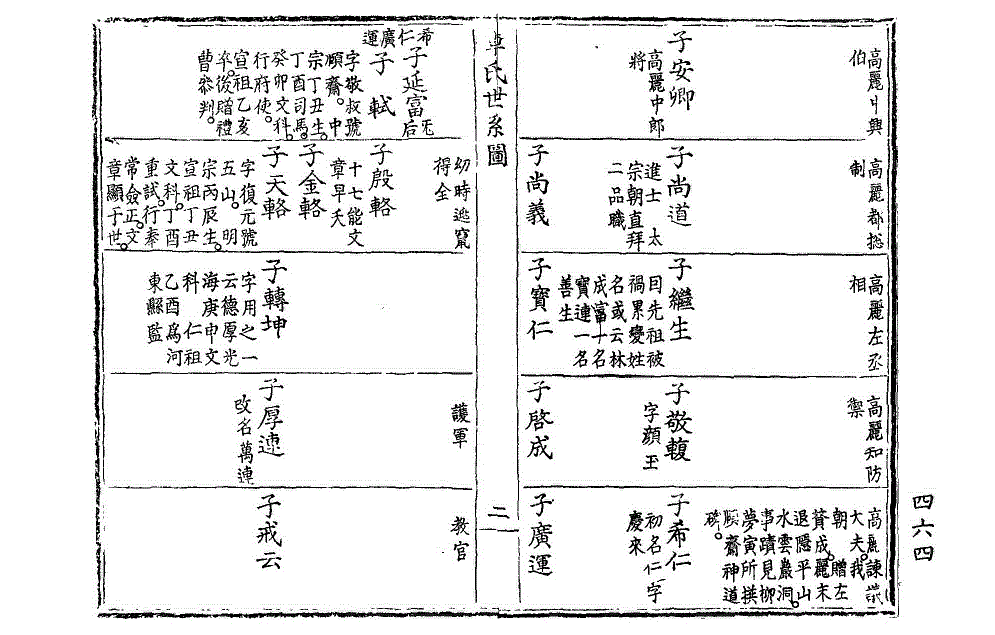 高麗中興
伯
子安卿
高麗中郎
將
高麗都摠
制
子尚道
進士 太
宗朝直拜
二品職
子尚義
高麗左丞
相
子繼生
因先祖被
禍累變姓
名或云林
成富一名
寶連一名
善生
子寶仁
高麗知防
禦
子敬輹
字顔玉
子啓成
高麗諫議
大夫。我
朝贈左
贊成。麗末
退隱平山
水雲巖洞。
事蹟見柳
夢寅所撰
頤齋神道
碑。
子希仁
初名仁字
慶來
子廣運
車氏世系圖
二
希仁廣運
子延富 无后
子軾
字敬叔號
頤齋。中
宗丁丑生。
丁酉司馬。
癸卯文科。
行府使。
宣祖乙亥
卒。後贈禮
曹參判。
幼時逃竄
得全
子殷輅
十七能文
章早夭
子金輅
子天輅
字復元號
五山。明
宗丙辰生。
宣祖丁丑
文科。丁酉
重試。行奉
常僉正。文
章顯于世。
子轉坤
字用之一
云德厚光
海庚申文
科 仁祖
乙酉爲河
東縣監
護軍
子厚連
改名萬連
教官
子戒云
四六四